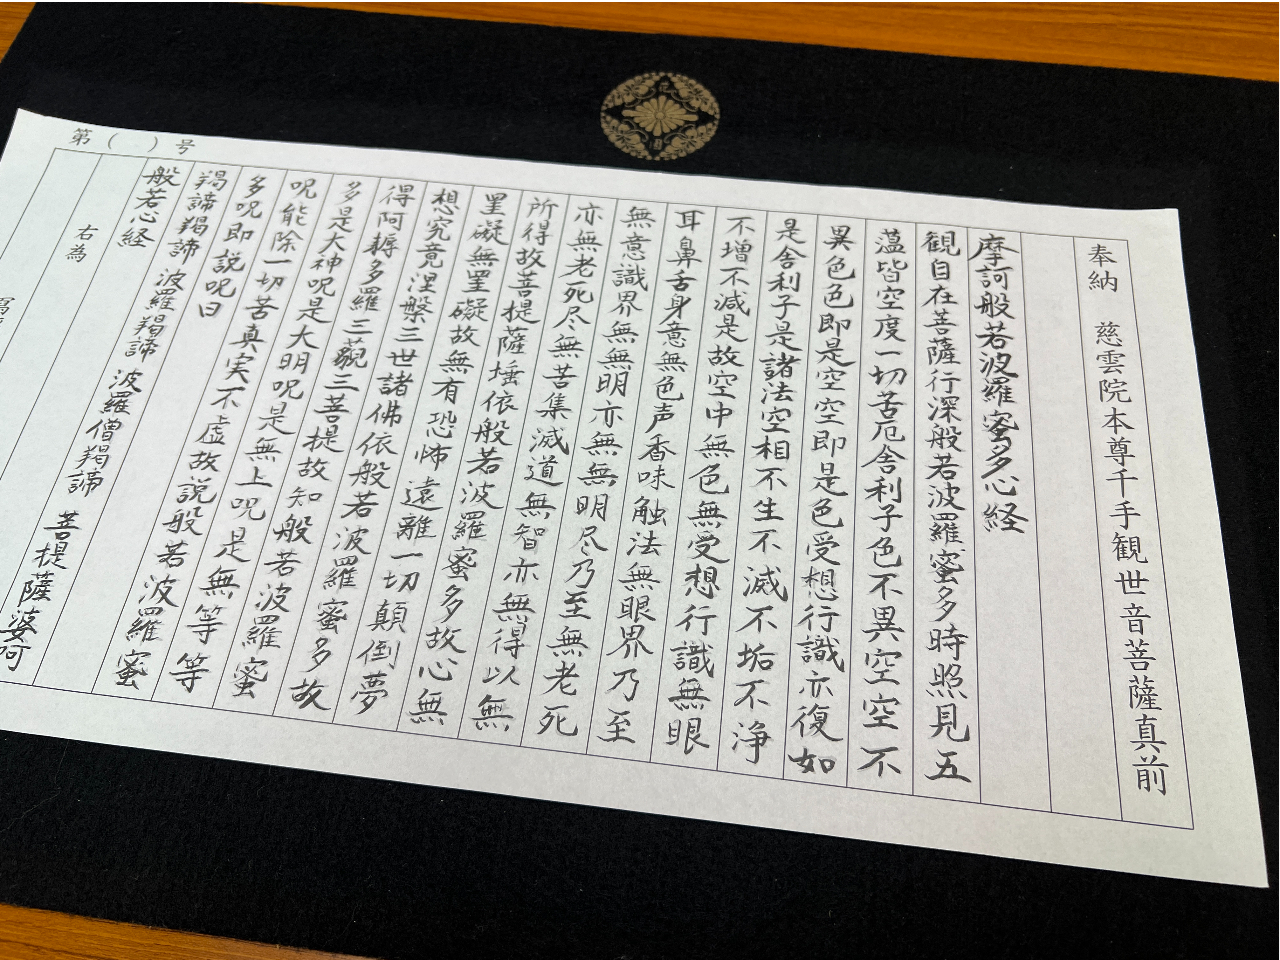 奉納　慈雲院本尊千手観世音菩薩真前
摩訶般若波羅蜜多心経
観自在菩薩行深般若波羅蜜多時照見五
薀皆空度一切苦厄舎利子色不異空空不
異色色即是空空即是色受想行識亦復如
是舎利子是諸法空相不生不滅不垢不浄
不増不減是故空中無色無受想行識無眼
耳鼻舌身意無色声香味触法無眼界乃至
無意識界無無明亦無無明尽乃至無老死
亦無老死尽無苦集滅道無智亦無得以無
所得故菩提薩埵依般若波羅蜜多故心無
罣礙無罣礙故無有恐怖遠離一切顛倒夢
想究竟涅槃三世諸佛依般若波羅蜜多故
得阿耨多羅三藐三菩提故知般若波羅蜜
多是大神呪是大明呪是無上呪是無等等
呪能除一切苦真実不虚故説般若波羅蜜
多呪即説呪曰
羯諦羯諦　波羅羯諦　波羅僧羯諦　菩提薩婆訶
般若心経
右為
第（　）号